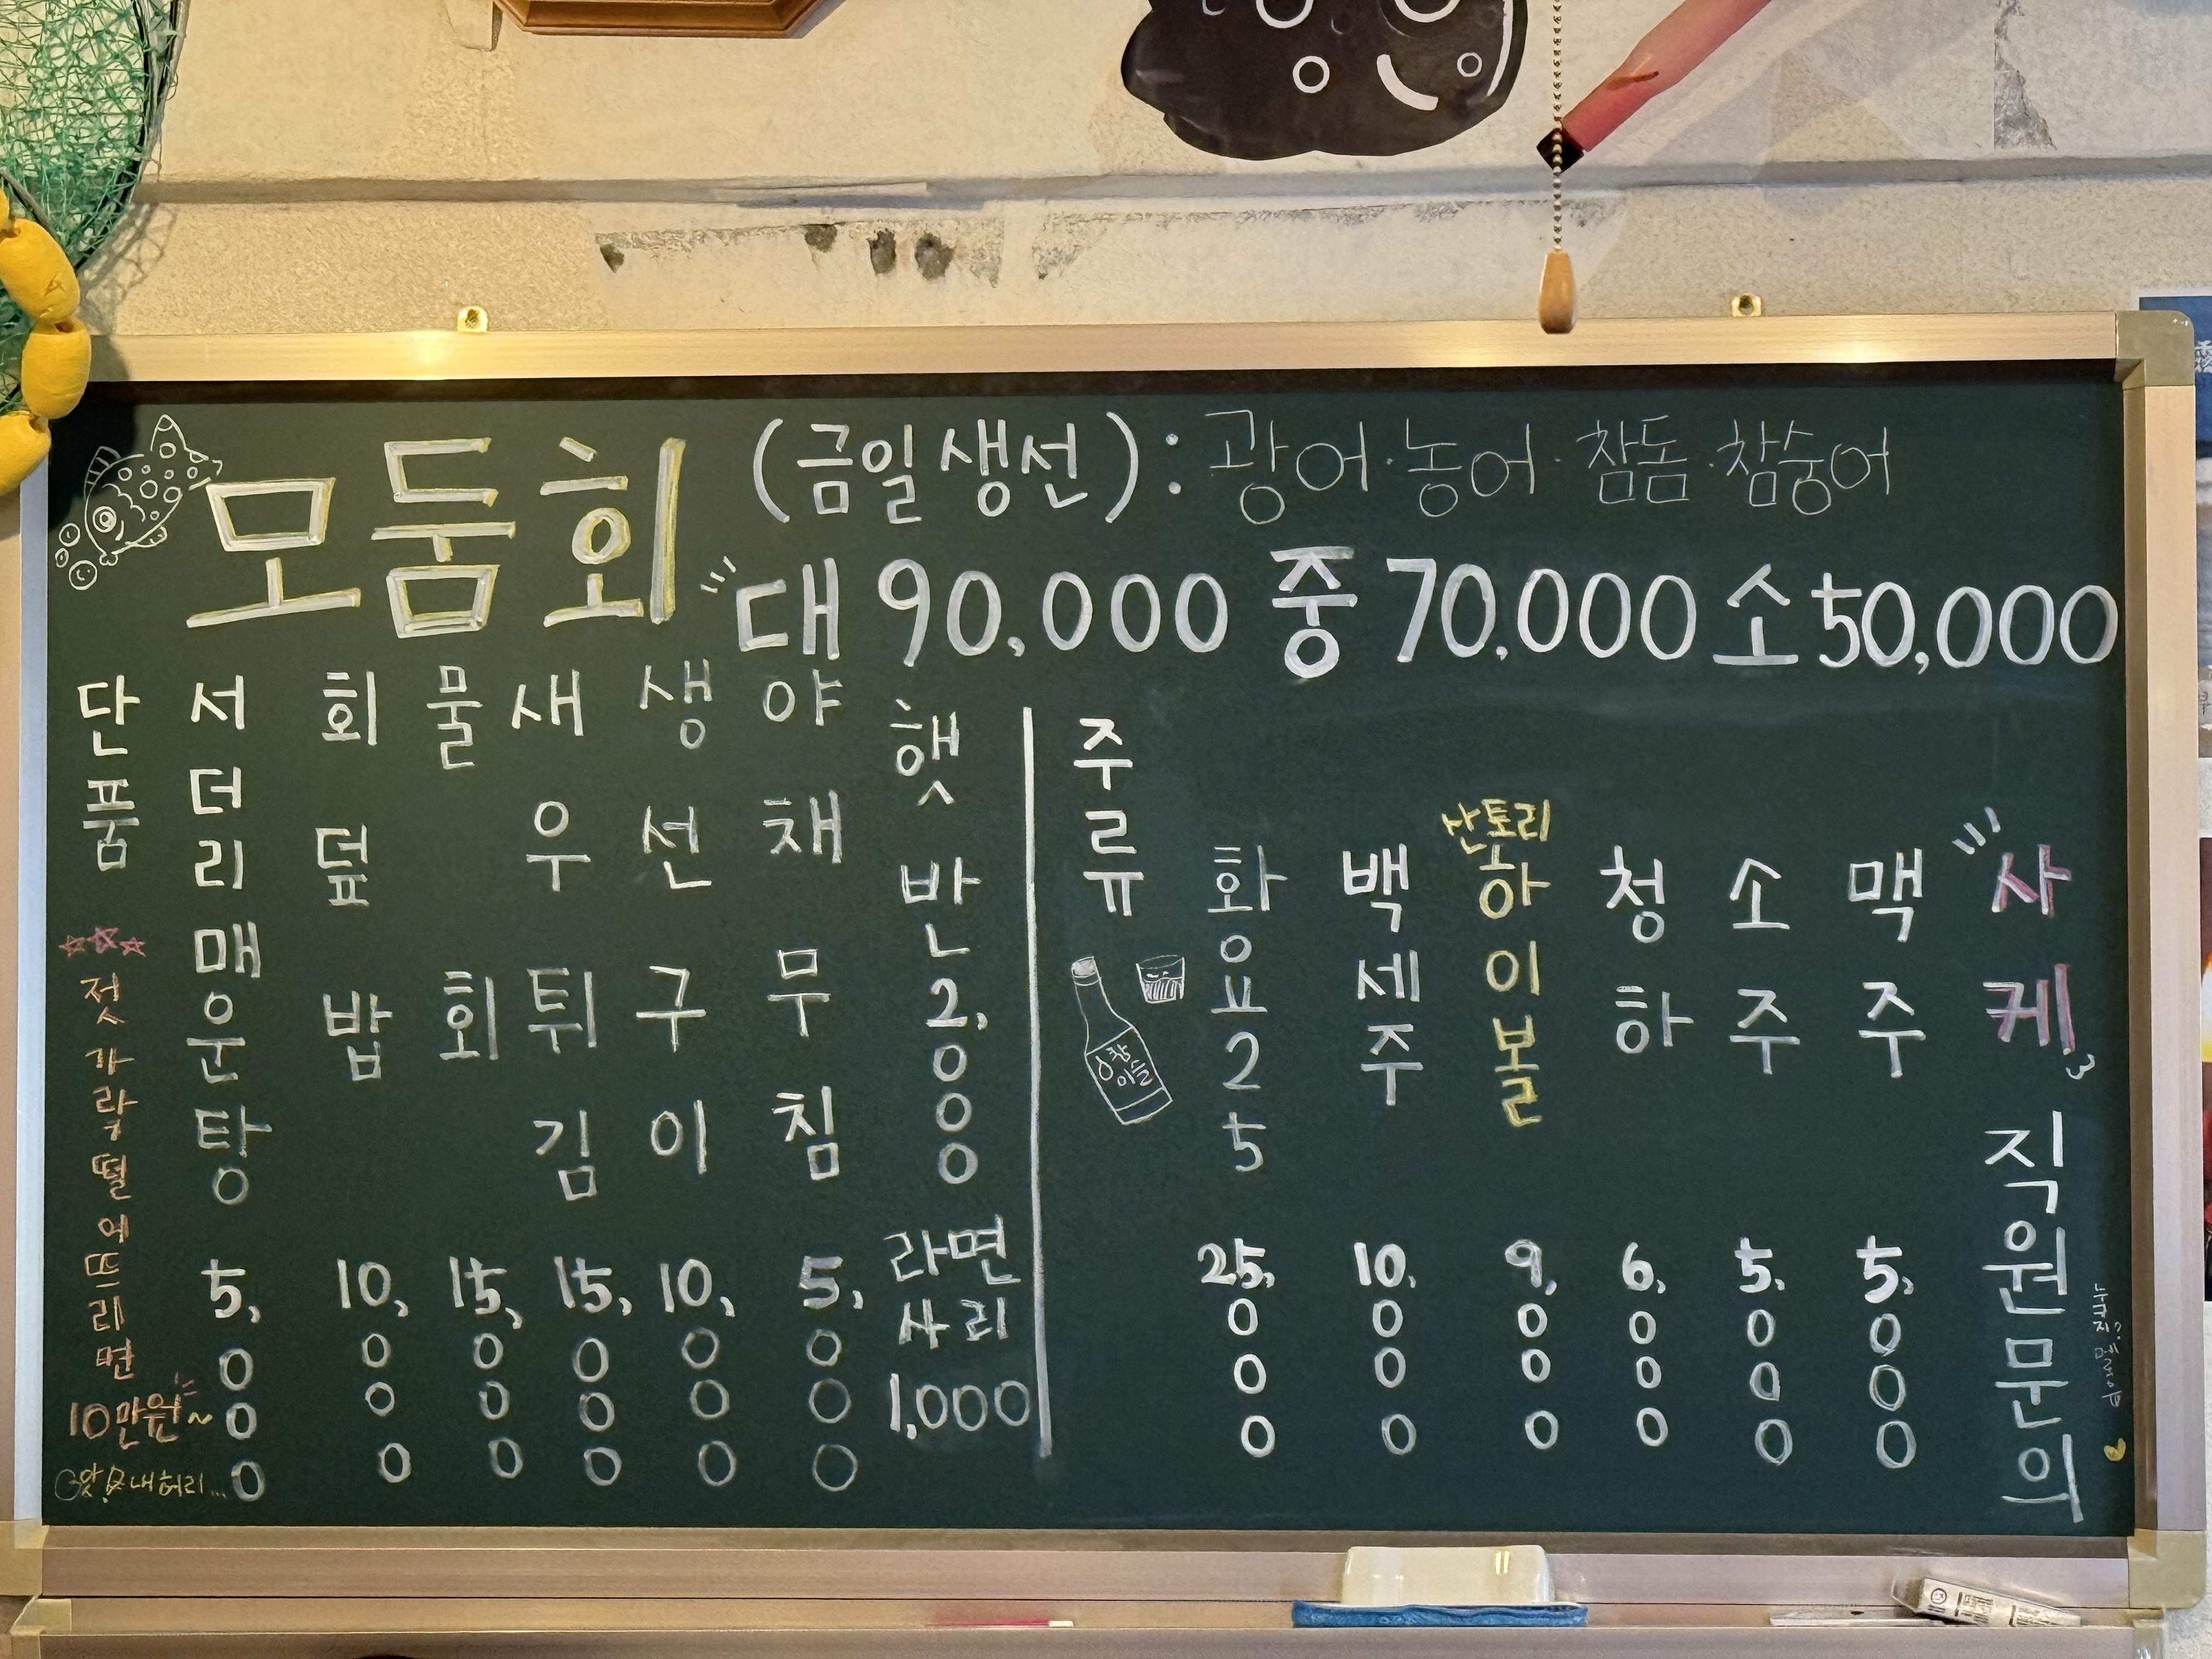 모둠회
(금일 생선) : 광어 · 농어 · 참돔 · 참숭어
대 90,000 중 70,000 소 50,000
단품
서더리매운탕 5,000
회덮밥 10,000
물회 15,000
새우튀김 15,000
생선구이 10,000
야채무침 5,000
햇반 2,000
라면
사리
1,000
젓가락떨어뜨리면
10만원~
내허리...
주류
참
이슬
화요25 25,000
백세주 10,000
산토리
하이볼 9,000
청하 6,000
소주 5,000
맥주 5,000
사케 직원문의